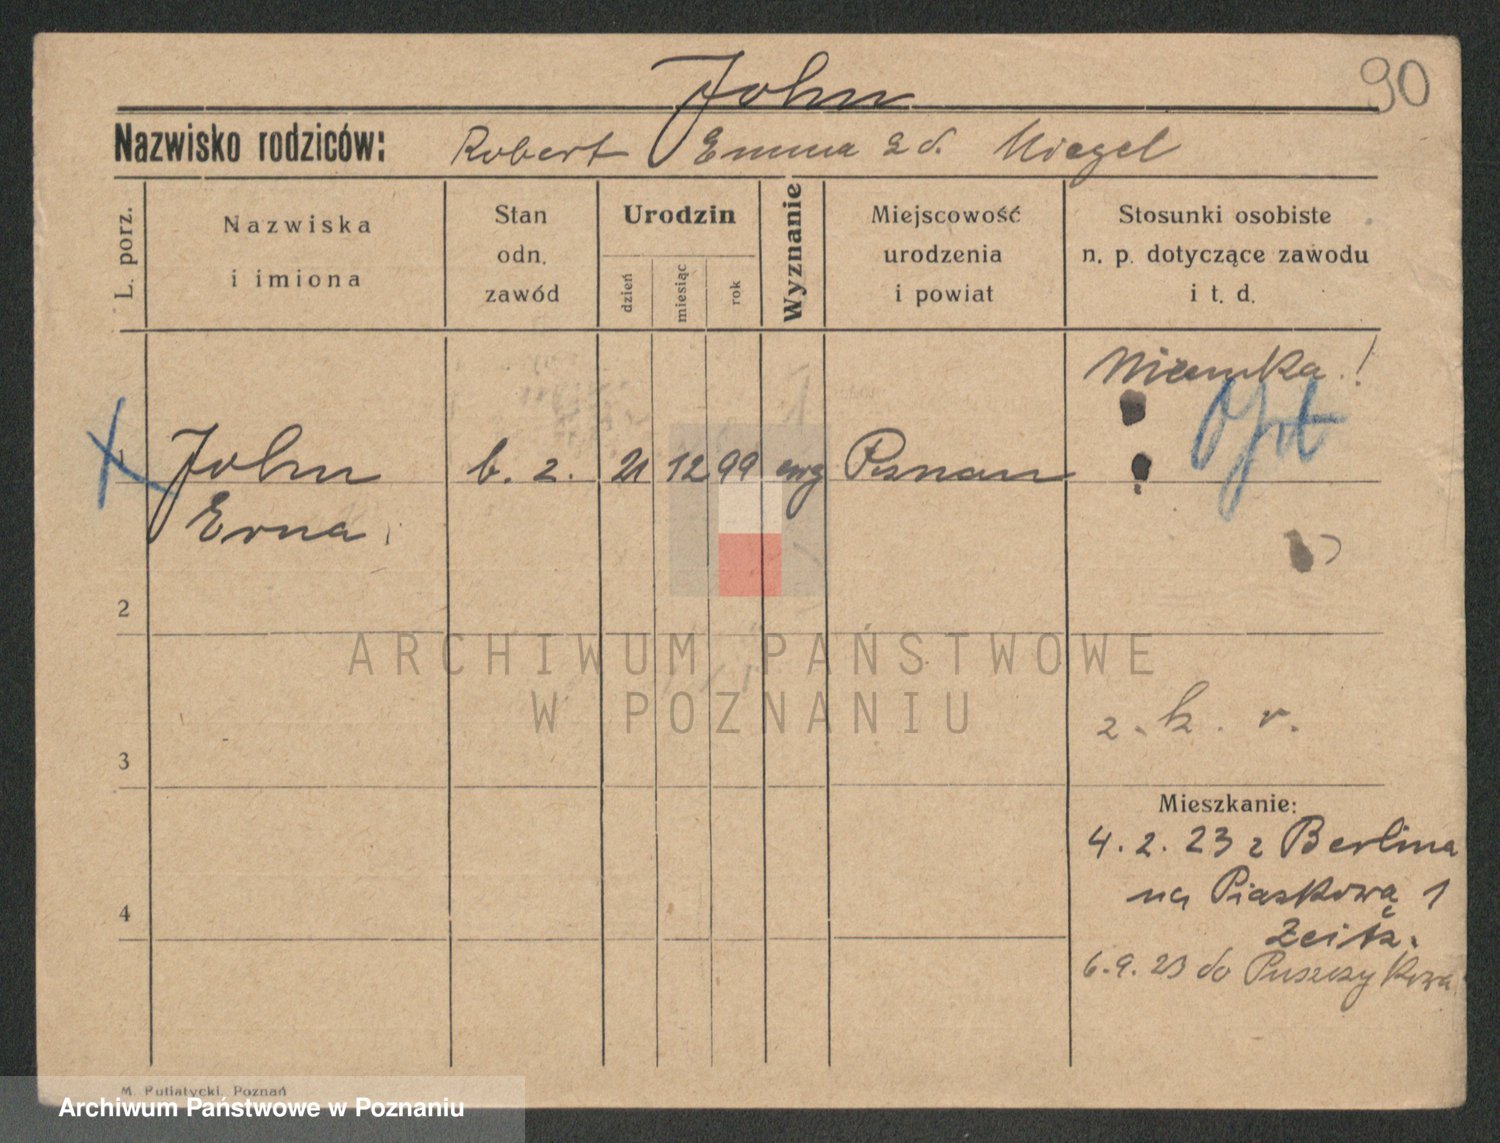 John
90
Nazwisko rodziców: Robert Emma z d. Miegel
L. porz.
Nazwiska i imiona
Stan odn. zawód
Urodzin
dzień
miesiąc
rok
Wyznanie
Miejscowość urodzenia i powiat
Stosunki osobiste n. p. dotyczące zawodu i t. d.
Niemka!
Opt
1 John b. z. 21 12 99 ewg Poznan
Erna
2
ARCHIWUM PAŃSTWOWE
W POZNANIU
z. k. r.
3
Mieszkanie:
4. 2. 23 z Berlina
na Piaskową 1
Zeitz.
4
6. 9. 23 do Puszczykowa
M. Putiatycki, Poznań
Archiwum Państwowe w Poznaniu